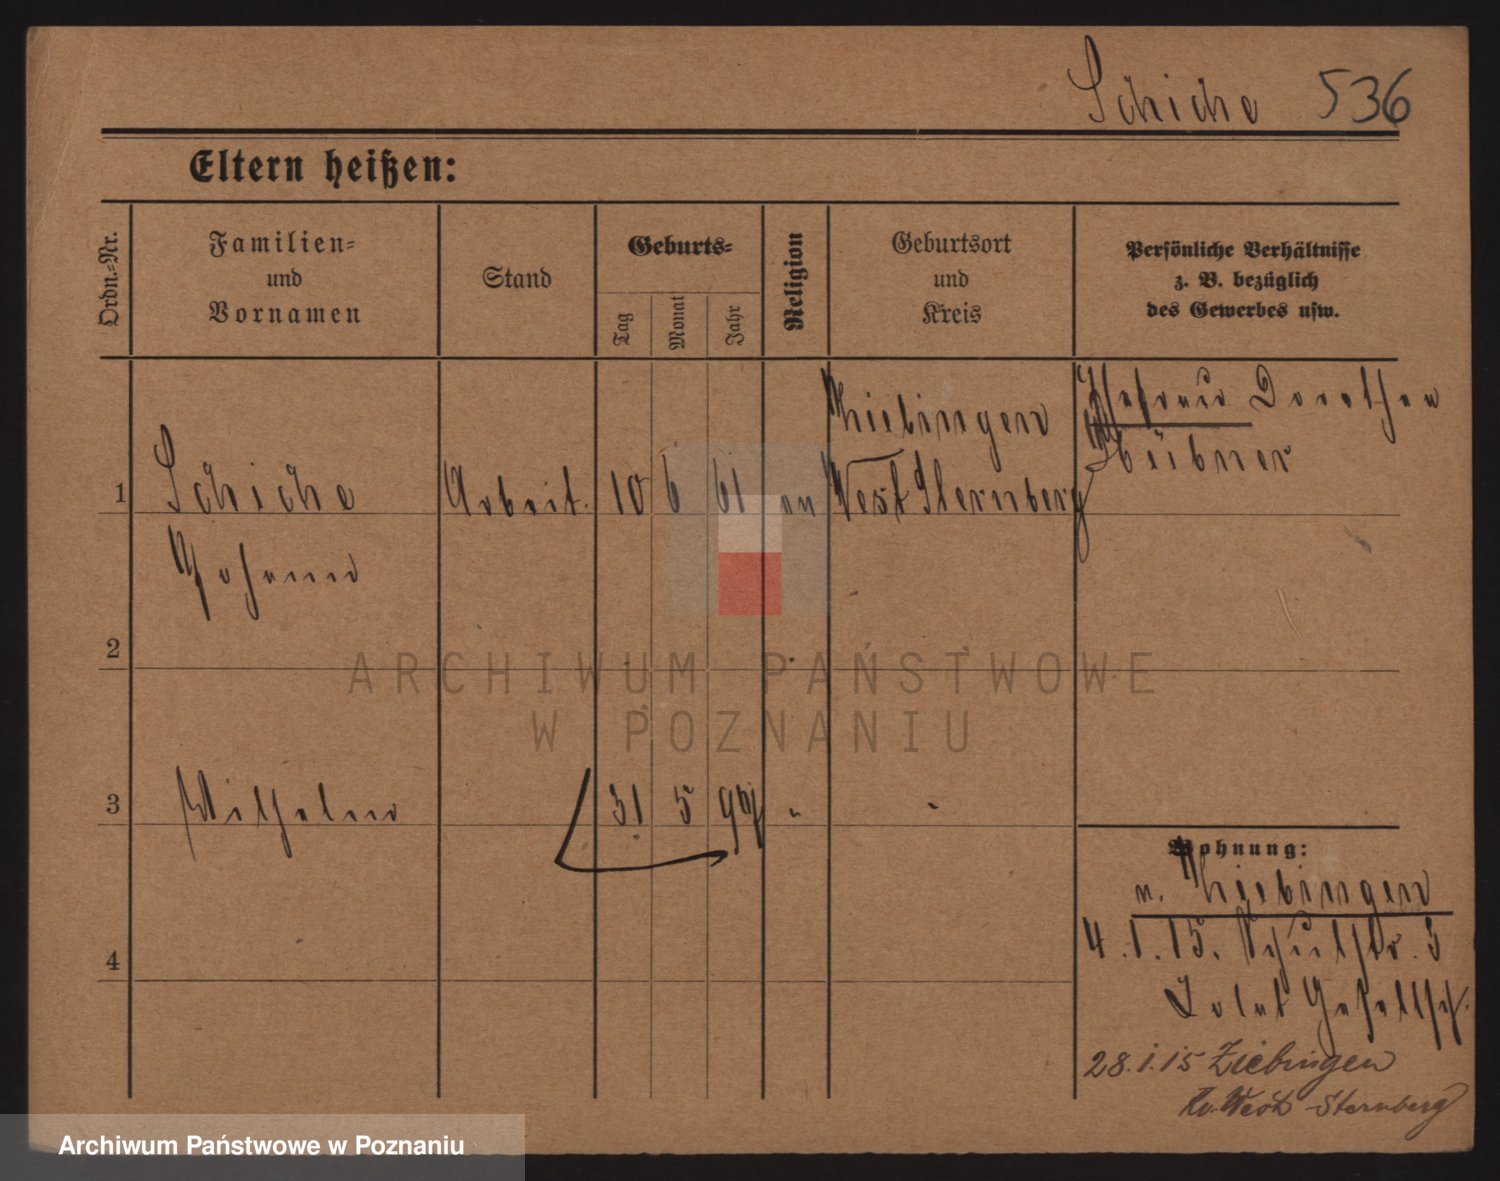 Schiche 536
Eltern heißen:
Ordn.-Nr.
Familien-
und
Vornamen
Stand
Geburts-
Tag
Monat
Jahr
Religion
Geburtsort
und
Kreis
Persönliche Verhältnisse
z. B. bezüglich
des Gewerbes usw.
Ziebingen
Ehefrau Dorothea
1 Schiche Arbeit. 10 6 61 ev West Sternberg
Johann
2
3 Wilhelm 31 5 "
Wohnung:
n. Ziebingen
4.1.15. Schulstr. 3
28.1.15 Ziebingen
Kr. West-Sternberg
4
ARCHIWUM PAŃSTWOWE
W POZNANIU
Archiwum Państwowe w Poznaniu